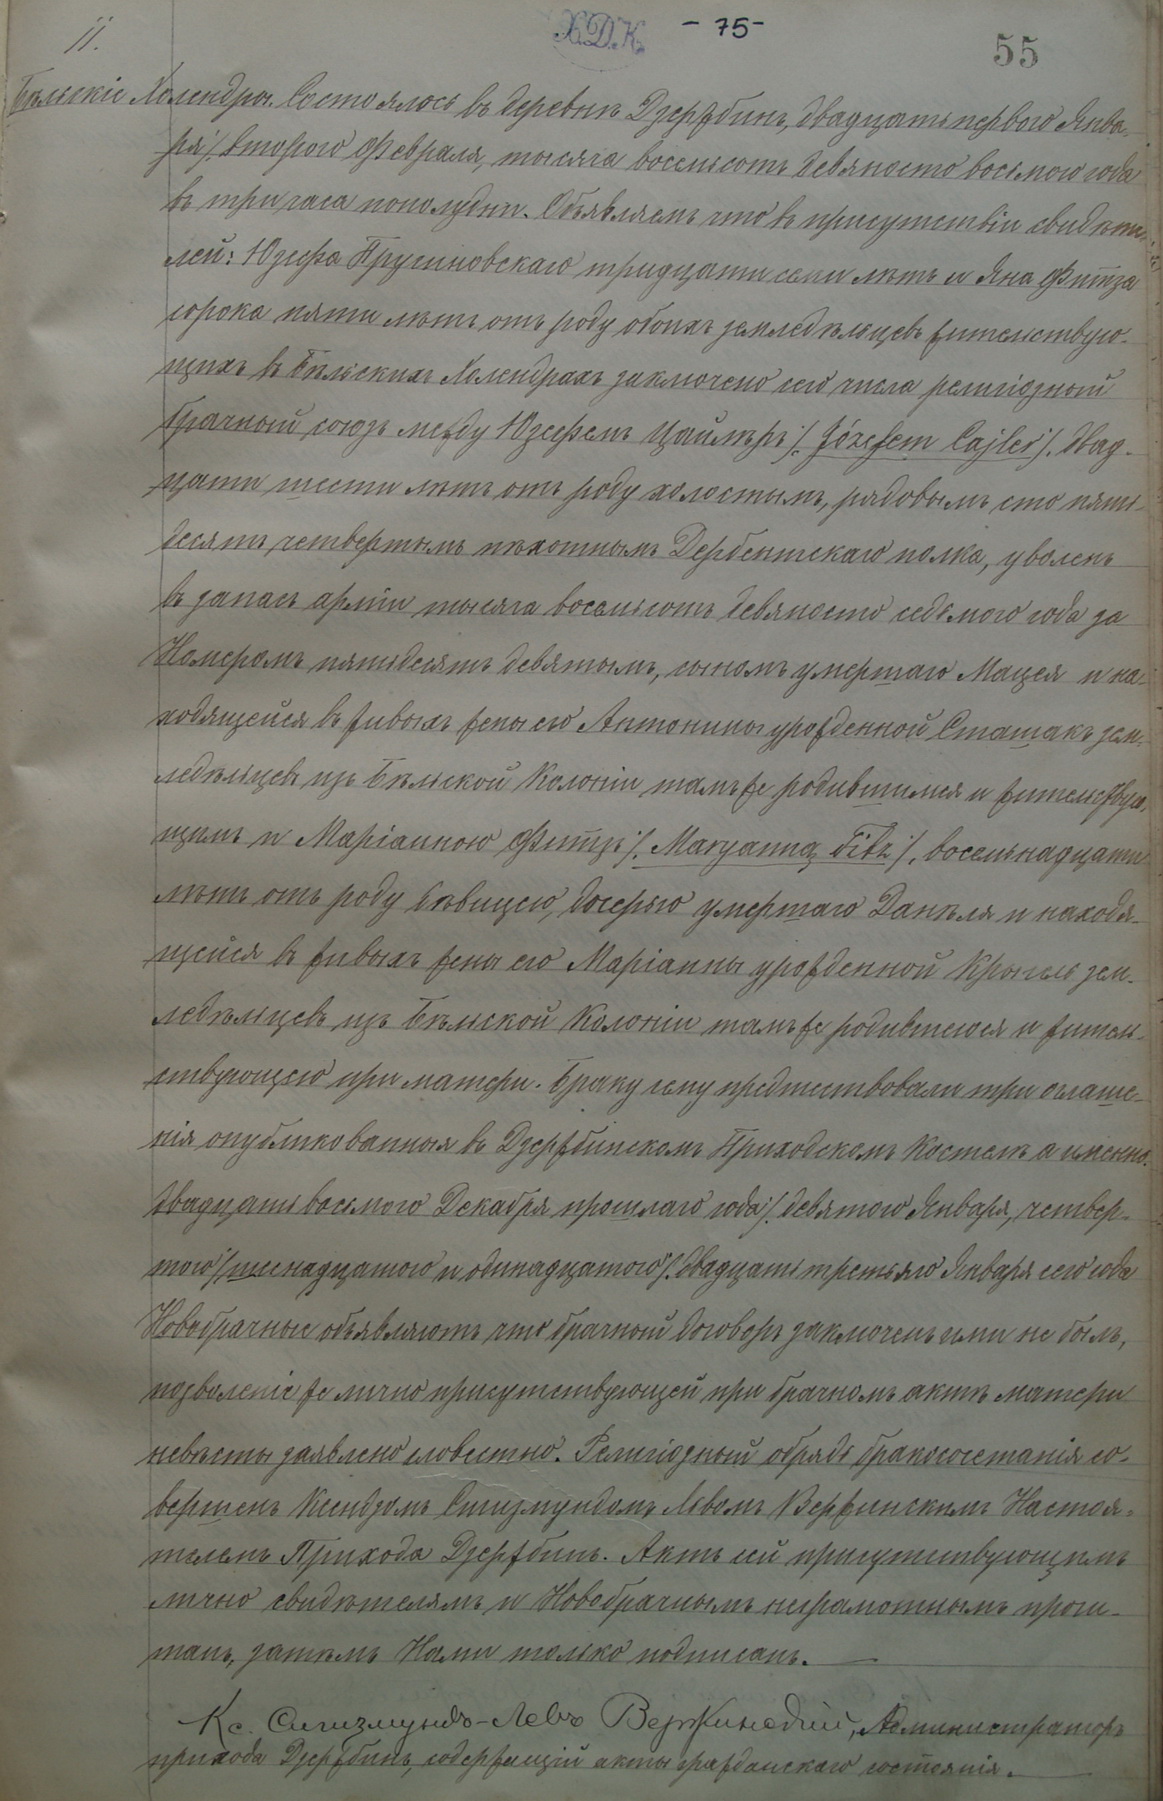 11.
Х.Д.К.
- 75 -
55
Бѣльскіе Холендры. Состоялось въ деревнѣ Дзержбинъ, двадцать перваго Янва-
ря /. втораго Февраля, тысяча восемьсотъ девяносто восьмого года
въ три часа пополудни. Объявляемъ что въ присутствіи свидѣте-
лей: Юзефа Пругиновскаго тридцати семи лѣтъ и Яна Фитза
сорока пяти лѣтъ отъ роду обоихъ земледѣльцевъ жительствую-
щихъ въ Бѣльскихъ Холендрахъ заключено сего числа религіозный
брачный союзъ между Юзефемъ Цайлеръ /. Józefem Cajler /. двад-
цати шести лѣтъ отъ роду холостымъ, рядовымъ сто пять-
десятъ четвертымъ пѣхотнымъ Дербентскаго полка, уволенъ
въ запасъ арміи тысяча восемьсотъ девяносто седьмого года за
Номеромъ пятьдесятъ девятымъ, сыномъ умершаго Мацея и на-
ходящейся въ живыхъ жены его Антонины урожденной Сташакъ зем-
ледѣльцевъ изъ Бѣльской Колоніи тамъ же родившимся и жительствую-
щимъ и Маріанною Фитцъ /. Maryanną Fitz /. восемьнадцати
лѣтъ отъ роду дѣвицею, дочерью умершаго Данѣля и находя-
щейся въ живыхъ жены его Маріанны урожденной Крыгель зем-
ледѣльцевъ изъ Бѣльской Колоніи тамъ же родившеюся и житель-
ствующею при матери. Браку сему предшествовали три оглаше-
нія опубликованныя въ Дзержбинскомъ Приходскомъ Костелѣ а именно:
двадцать восьмого Декабря прошлаго года /. девятого Января, четвер-
того /. шеснадцатого и одинадцатого /. двадцать третьяго Января сего года
Новобрачные объявляютъ что брачный договоръ заключенъ ими не былъ,
позволеніе же лично присутствующей при брачномъ актѣ матери
невѣсты заявлено словестно. Религіозный обрядъ бракосочетанія со-
вершенъ Ксендзомъ Сигизмундомъ Львомъ Вержинскимъ Настоя-
телемъ Прихода Дзержбинъ. Актъ сей присутствующимъ
лично свидѣтелямъ и Новобрачнымъ неграмотнымъ прочи-
танъ, затѣмъ Нами только подписанъ.
Кс. Сигизмундъ-Левъ Вержинскій, Администраторъ
прихода Дзержбинъ, содержащій акты гражданскаго состоянія.